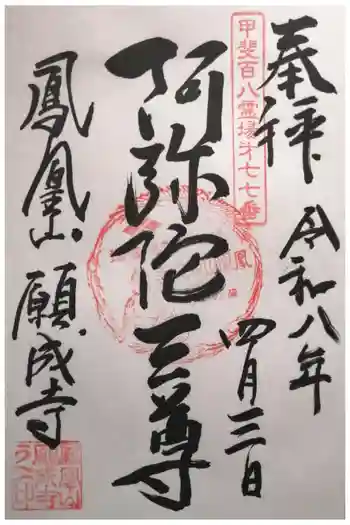 奉拝
令和八年
四月三日
甲斐百八霊場才七七番
阿弥陀三尊
鳳
鳳凰山
願成寺